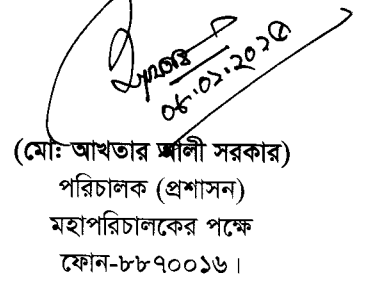 (মোঃ আখতার আলী সরকার)
পরিচালক (প্রশাসন)
মহাপরিচালকের পক্ষে
ফোন-৮৮৭০০১৬।